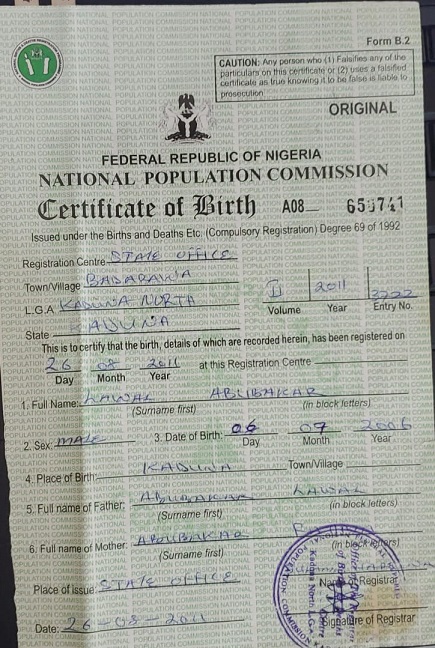 Form B.2
CAUTION: Any person who (1) Falsifies any of the
particulars on this certificate or (2) uses a falsified
certificate as true knowing it to be false is liable to
prosecution
ORIGINAL
FEDERAL REPUBLIC OF NIGERIA
NATIONAL POPULATION COMMISSION
Certificate of Birth A08
Issued under the Births and Deaths Etc. (Compulsory Registration) Degree 69 of 1992
Registration Centre STATE OFFICE
Town/Village BADARAWA
L.G.A KADUNA NORTH
II 2011 3222
Volume Year Entry No.
State KADUNA
This is to certify that the birth, details of which are recorded herein, has been registered on
26 08 2011 at this Registration Centre
Day Month Year
1. Full Name: LAWAL ABUBAKAR
(Surname first) (in block letters)
2. Sex: MALE 3. Date of Birth: 06 07 2006
Day Month Year
4. Place of Birth: KADUNA Town/Village
5. Full name of Father: ABUBAKAR LAWAL
(Surname first) (in block letters)
6. Full name of Mother: ABUBAKAR
(Surname first) (in block letters)
Place of issue: STATE OFFICE Name of Registrar
Date: 26-08-2011 Signature of Registrar